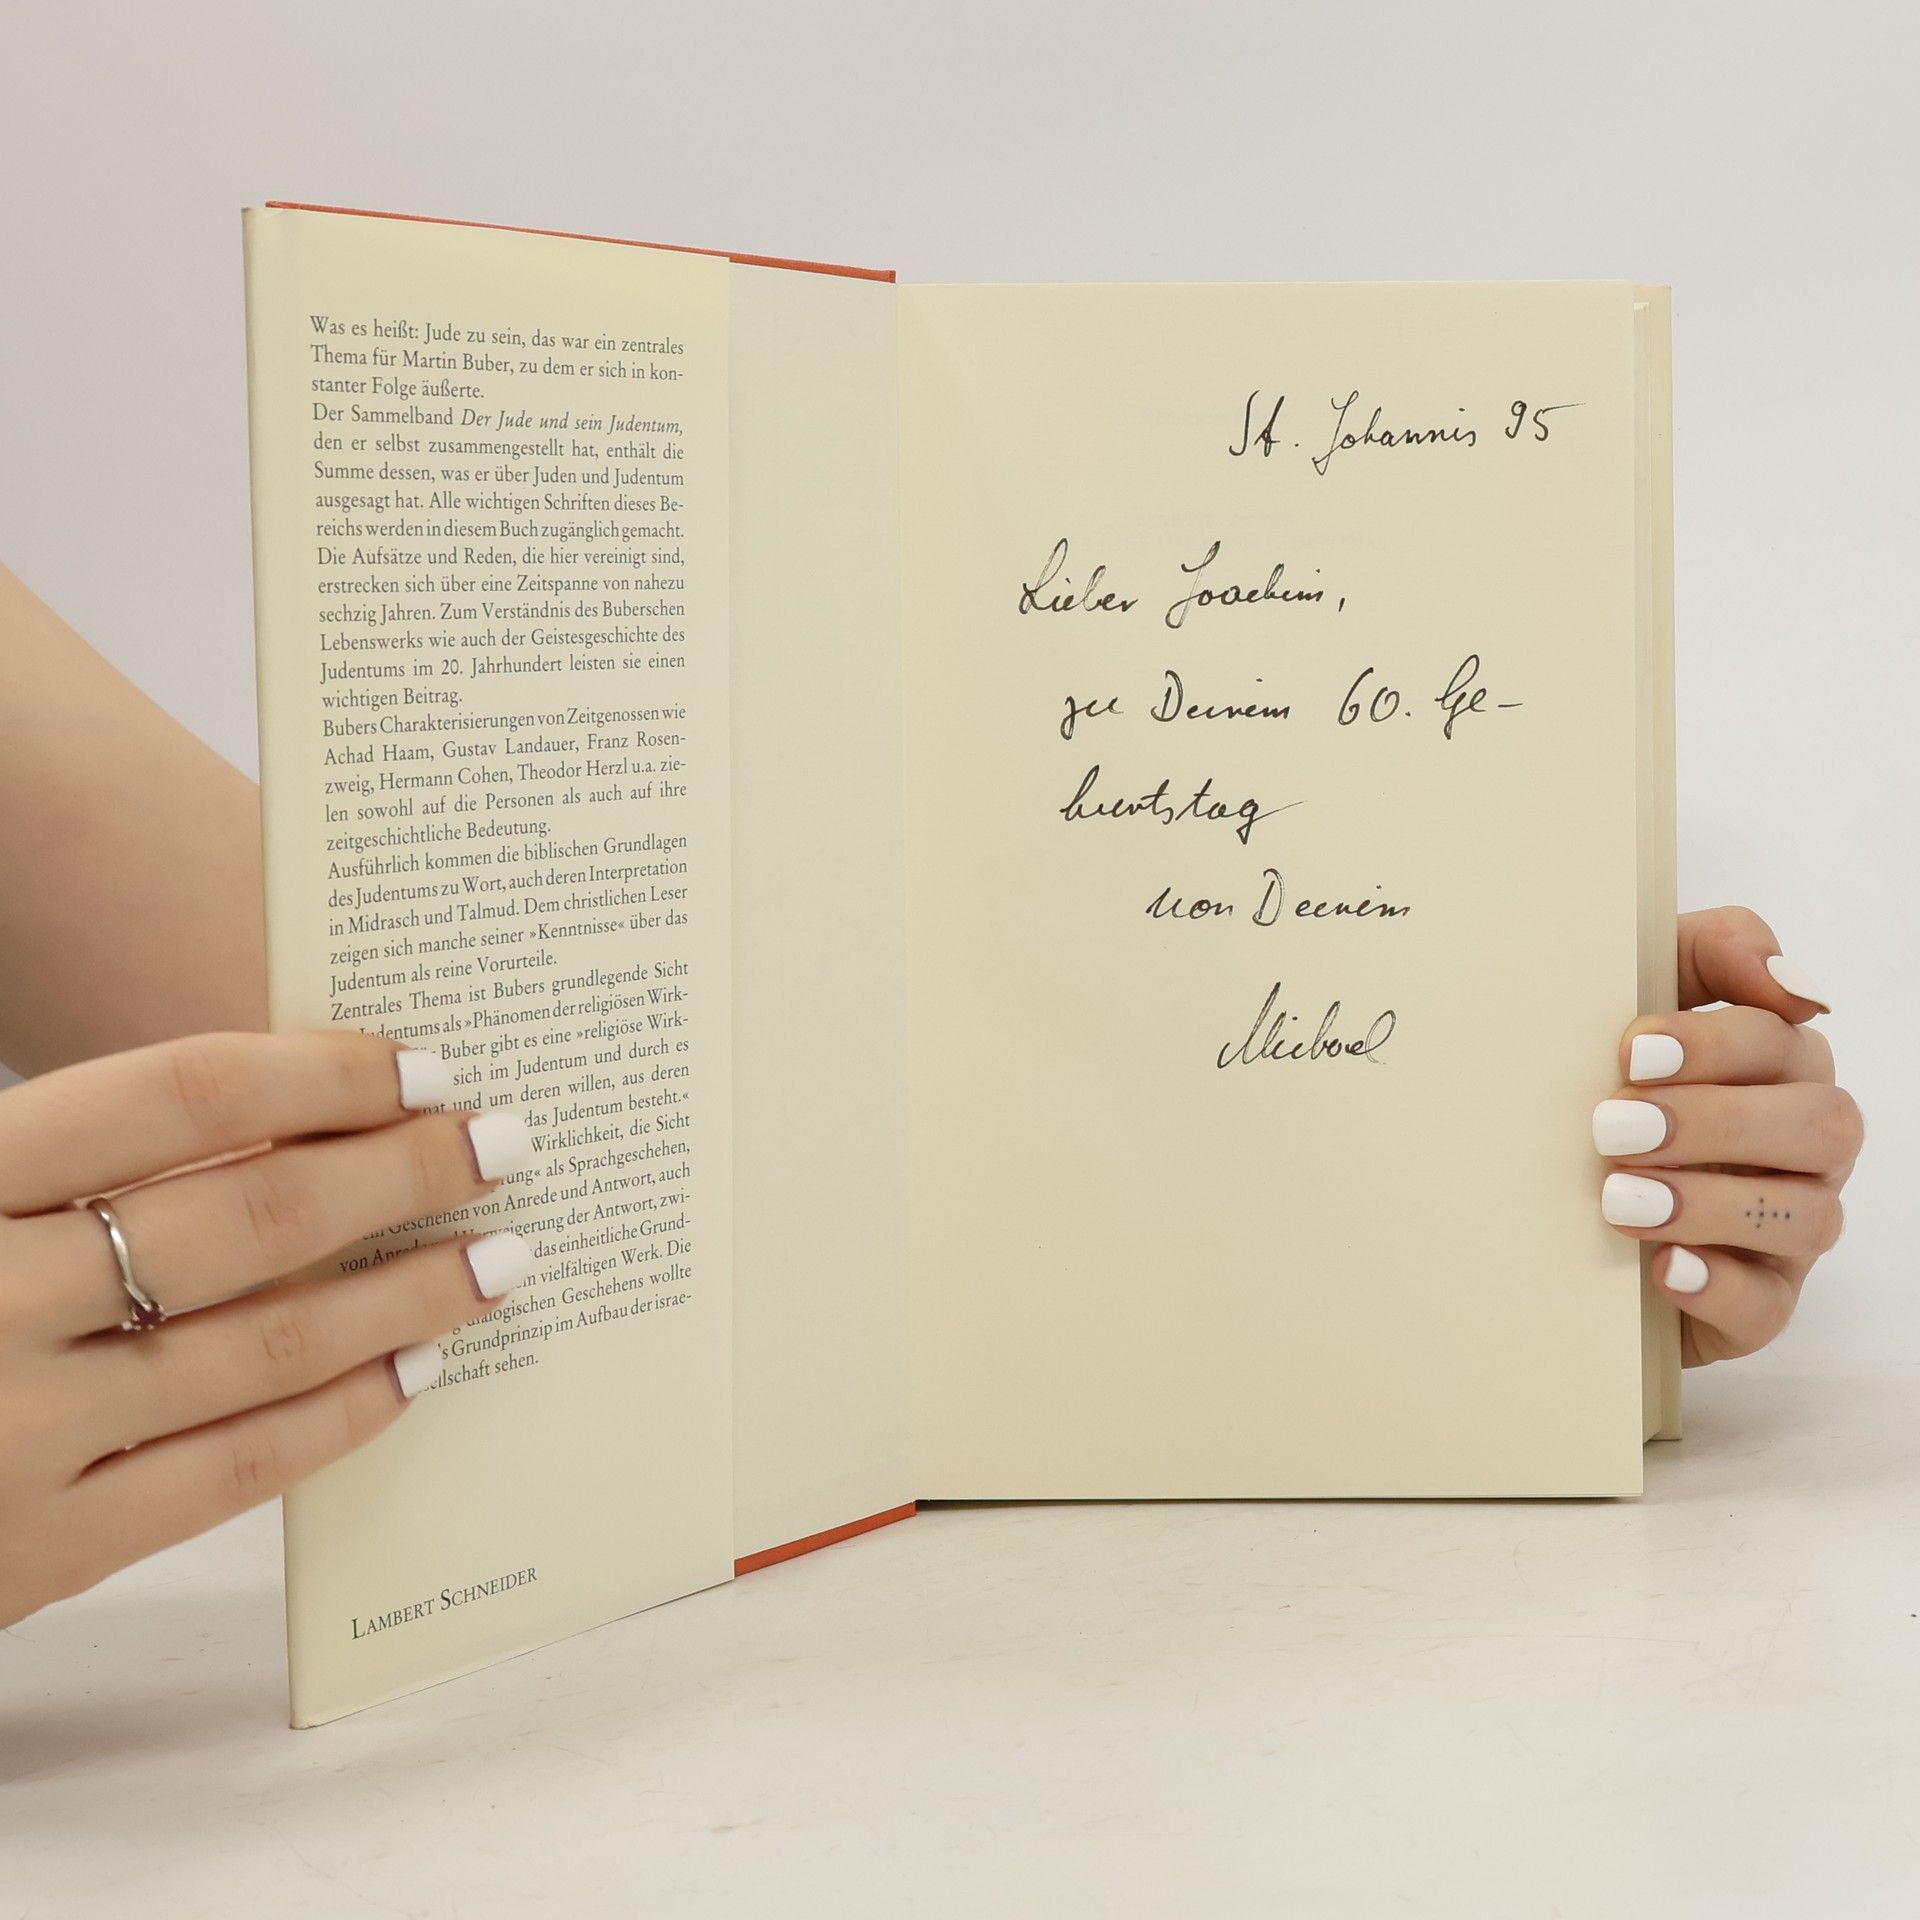 Was es heißt: Jude zu sein, das war ein zentrales
Thema für Martin Buber, zu dem er sich in kon-
stanter Folge äußerte.
Der Sammelband Der Jude und sein Judentum,
den er selbst zusammengestellt hat, enthält die
Summe dessen, was er über Juden und Judentum
ausgesagt hat. Alle wichtigen Schriften dieses Be-
reichs werden in diesem Buch zugänglich gemacht.
Die Aufsätze und Reden, die hier vereinigt sind,
erstrecken sich über eine Zeitspanne von nahezu
sechzig Jahren. Zum Verständnis des Buberschen
Lebenswerks wie auch der Geistesgeschichte des
Judentums im 20. Jahrhundert leisten sie einen
wichtigen Beitrag.
Bubers Charakterisierungen von Zeitgenossen wie
Achad Haam, Gustav Landauer, Franz Rosen-
zweig, Hermann Cohen, Theodor Herzl u.a. zie-
len sowohl auf die Personen als auch auf ihre
zeitgeschichtliche Bedeutung.
Ausführlich kommen die biblischen Grundlagen
des Judentums zu Wort, auch deren Interpretation
in Midrasch und Talmud. Dem christlichen Leser
zeigen sich manche seiner »Kenntnisse« über das
Judentum als reine Vorurteile.
Zentrales Thema ist Bubers grundlegende Sicht
Judentums als »Phänomen der religiösen Wirk-
Buber gibt es eine »religiöse Wirk-
sich im Judentum und durch es
hat und um deren willen, aus deren
das Judentum besteht.«
Wirklichkeit, die Sicht
als Sprachgeschehen,
Geschehen von Anrede und Antwort, auch
von Anrede und Verweigerung der Antwort, zwi-
das einheitliche Grund-
vielfältigen Werk. Die
dialogischen Geschehens wollte
Grundprinzip im Aufbau der israe-
sehen.
LAMBERT SCHNEIDER
St. Johannis 95
Lieber Joachim,
zu Deinem 60. Ge-
burtstag
von Deinem
Michael